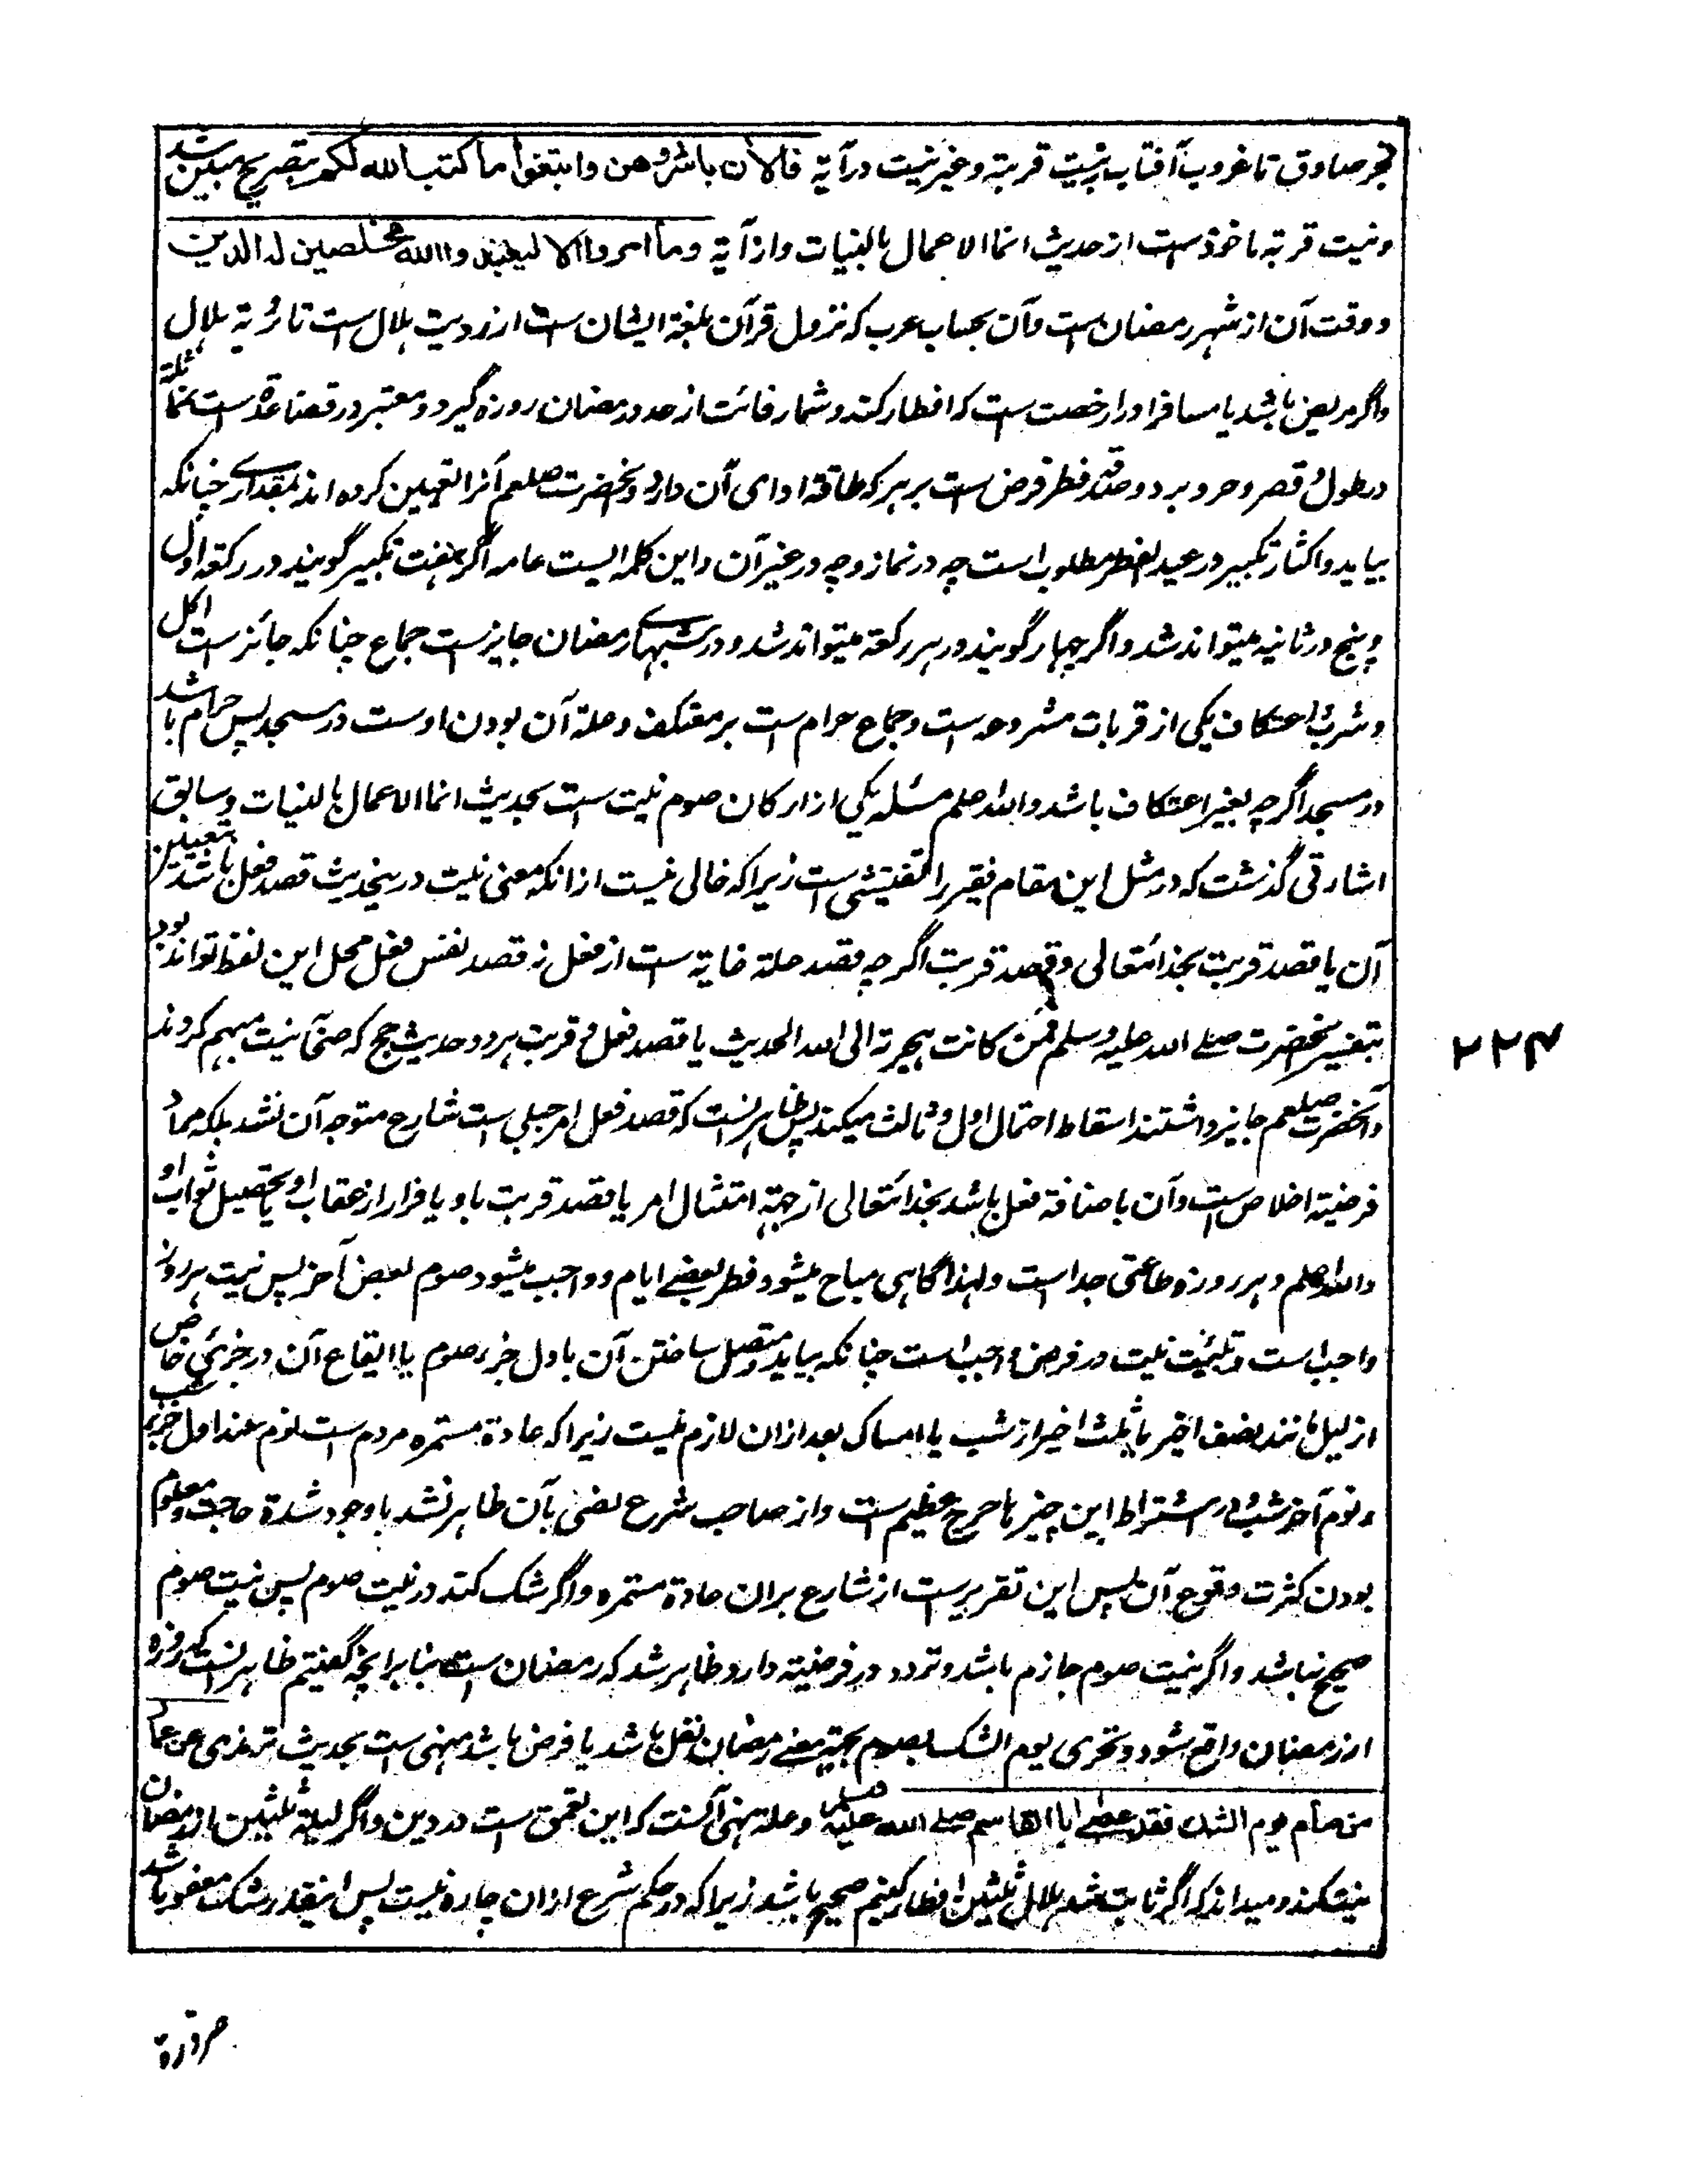 فجر صادق تا غروب آفتاب به نیت قربة و غیر نیت در آیة فالآن باشروهن وابتغوا ما کتب الله لکم بتصریح مبین شد
و نیت قربة ماخوذ ست از حدیث انما الاعمال بالنیات و از آیة وما امروا الا لیعبدوا الله مخلصین له الدین
و وقت آن از شهر رمضان ست و آن بحساب عرب که نزول قرآن بلغة ایشان ست از رویت هلال ست تا رؤیة هلال
و اگر مریض باشد یا مسافر او را رخصت ست که افطار کند و شمار فائت از عدد رمضان روزه گیرد و معتبر در قضا عدة ست نه مماثلة
در طول و قصر و حر و برد و صدقه فطر فرض ست بر هر که طاقة ادای آن دارد و آنحضرت صلعم آنرا تعیین کرده اند بمقداری چنانکه
بیاید و اکثار تکبیر در عید الفطر مطلوب است چه در نماز و چه در غیر آن و این کلمه ایست عامه اگر هفت تکبیر گویند در رکعة اول
و پنج در ثانیه میتواند شد و اگر چهار گویند در هر رکعة میتواند شد و در شبهای رمضان جایز ست جماع چنانکه جائز ست اکل
و شرب و اعتکاف یکی از قربات مشروعه ست و جماع حرام ست بر معتکف و علة آن بودن اوست در مسجد پس حرام باشد
در مسجد اگرچه بغیر اعتکاف باشد والله اعلم مسئله یکی از ارکان صوم نیت ست بحدیث انما الاعمال بالنیات و سابق
اشارتی گذشت که در مثل این مقام فقیر را تفتیشی ست زیرا که خالی نیست از انکه معنی نیت درینحدیث قصد فعل باشد بتعیین
آن یا قصد قربت بخدایتعالی و قصد قربت اگرچه قصد علة غایة ست از فعل نه قصد نفس فعل محل این لفظ تواند بود
بتفسیر آنحضرت صلے الله علیه وسلم فمن کانت هجرته الی الله الحدیث یا قصد فعل و قربت هر دو حدیث حج که صحابه نیت مبهم کردند
و آنحضرت صلعم جایز داشتند اسقاط احتمال اول و ثالث میکند پس ظاهر آنست که قصد فعل امر جبلی ست شارع متوجه آن نشد بلکه مراد
فرضیة اخلاص ست و آن باضافة فعل باشد بخدایتعالی از جهة امتثال امر یا قصد قربت باو یا فرار از عقاب او یا تحصیل ثواب او
والله اعلم و هر روزه طاعتی جداست و لهذا گاهی مباح میشود فطر بعضے ایام و واجب میشود صوم بعض آخر پس نیت هر روز
واجب است و تبییت نیت در فرض واجب است چنانکه بیاید و متصل ساختن آن باول جزء صوم یا ایقاع آن در جزئی خاص
از لیل مانند نصف اخیر یا ثلث اخیر از شب یا امساک بعد ازان لازم نیست زیرا که عادة مستمره مردم ست نوم عند اول جزء شب
و نوم آخر شب و در اشتراط این چیزها حرج عظیم ست و از صاحب شرع نصی بآن ظاهر نشد با وجود شدة حاجت و معلوم
بودن کثرت وقوع آن پس این تقریر ست از شارع بران عادة مستمره و اگر شک کند در نیت صوم پس نیت صوم
صحیح نباشد و اگر بنیت صوم جازم باشد و تردد در فرضیة دارد و ظاهر شد که رمضان ست بنا بر آنچه گفتیم ظاهر آنست که روزه
از رمضان واقع شود و تحری یوم الشک بصوم بجهة معنے رمضان نفل باشد یا فرض باشد منهی ست بحدیث ترمذی عن عمار
من صام یوم الشک فقد عصے ابا القاسم صلے الله علیه وسلم و علة نهی آنست که این تعمق ست در دین و اگر لیلة ثلثین از رمضان
نیت کند و میداند که اگر ثابت شد هلال ثلثین افطار کنیم صحیح باشد زیرا که در حکم شرع ازان چاره نیست پس اینقدر شک معفو باشد
۲۲۴
ضرورة